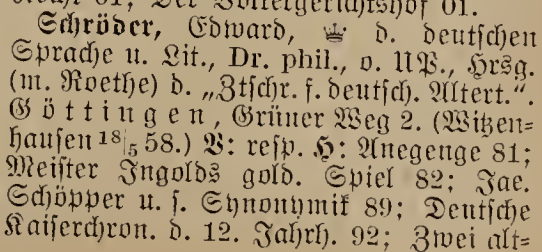 Schröder, Edward, d. deutschen
Sprache u. Lit., Dr. phil., o. UP., Hrsg.
(m. Roethe) d. „Ztschr. f. deutsch. Altert.“.
Göttingen, Grüner Weg 2. (Witzen=
hausen 18/5 58.) V: resp. H: Anegenge 81;
Meister Ingolds gold. Spiel 82; Jae.
Schöpper u. s. Synonymik 89; Deutsche
Kaiserchron. d. 12. Jahrh. 92; Zwei alt=